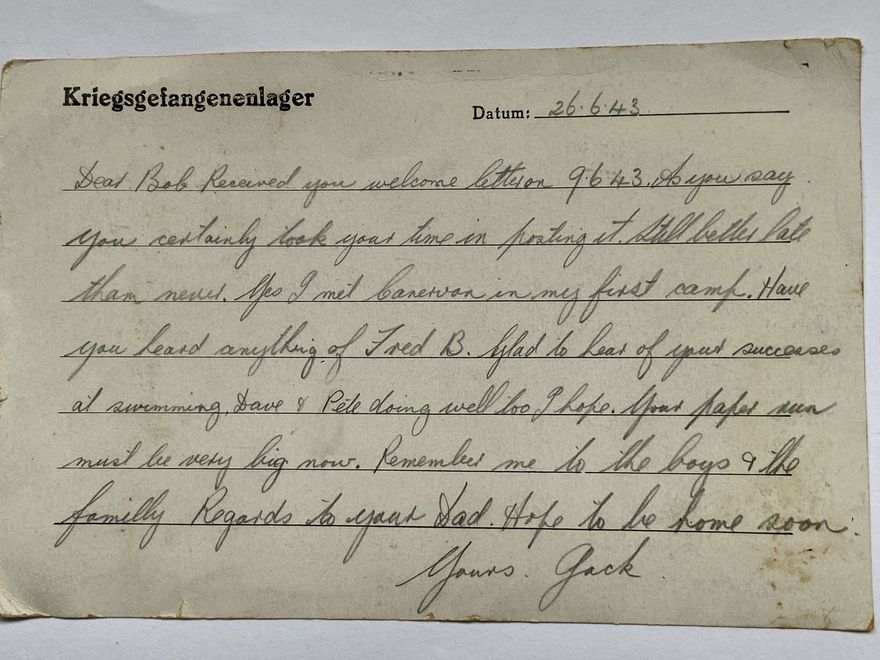 Kriegsgefangenenlager
Datum: 26.6.43
Dear Bob. Received you welcome letter on 9.6.43. As you say
you certainly took your time in posting it. Still better late
than never. Yes I met in my first camp. Have
you heard anything of Fred B. Glad to hear of your successes
at swimming, Dave & Pete doing well too I hope. Your paper run
must be very big now. Remember me to the boys & the
familly Regards to your Dad. Hope to be home soon.
Yours. Jack.